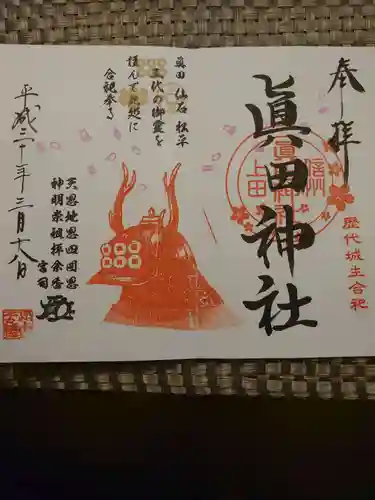 奉拝
歴代城主合祀
眞田神社
信州
眞田神社
上田
眞田 仙石 松平
三代の御霊を
謹んで此処に
合祀奉る
平成三十年三月十八日
天恩地恩四国恩
神明崇祖拝余香
宮司